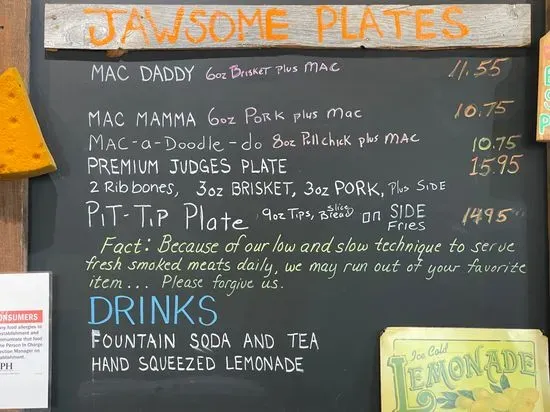 JAWSOME PLATES
MAC DADDY 6oz Brisket plus MAC 11.55
MAC MAMMA 6oz PORK plus Mac 10.75
MAC-a-Doodle-do 8oz Pull chick plus MAC 10.75
PREMIUM JUDGES PLATE 15.95
2 Rib bones, 3oz BRISKET, 3oz PORK, Plus SIDE
PiT-TiP Plate 9oz Tips, Slice Bread on SIDE Fries 1495
Fact: Because of our low and slow technique to serve
fresh smoked meats daily, we may run out of your favorite
item... Please forgive us.
DRINKS
FOUNTAIN SODA AND TEA
HAND SQUEEZED LEMONADE
ONSUMERS
food allergies to
establishment and
communicate that food
Person In Charge
Manager on
PH
Ice Cold
LEMONADE